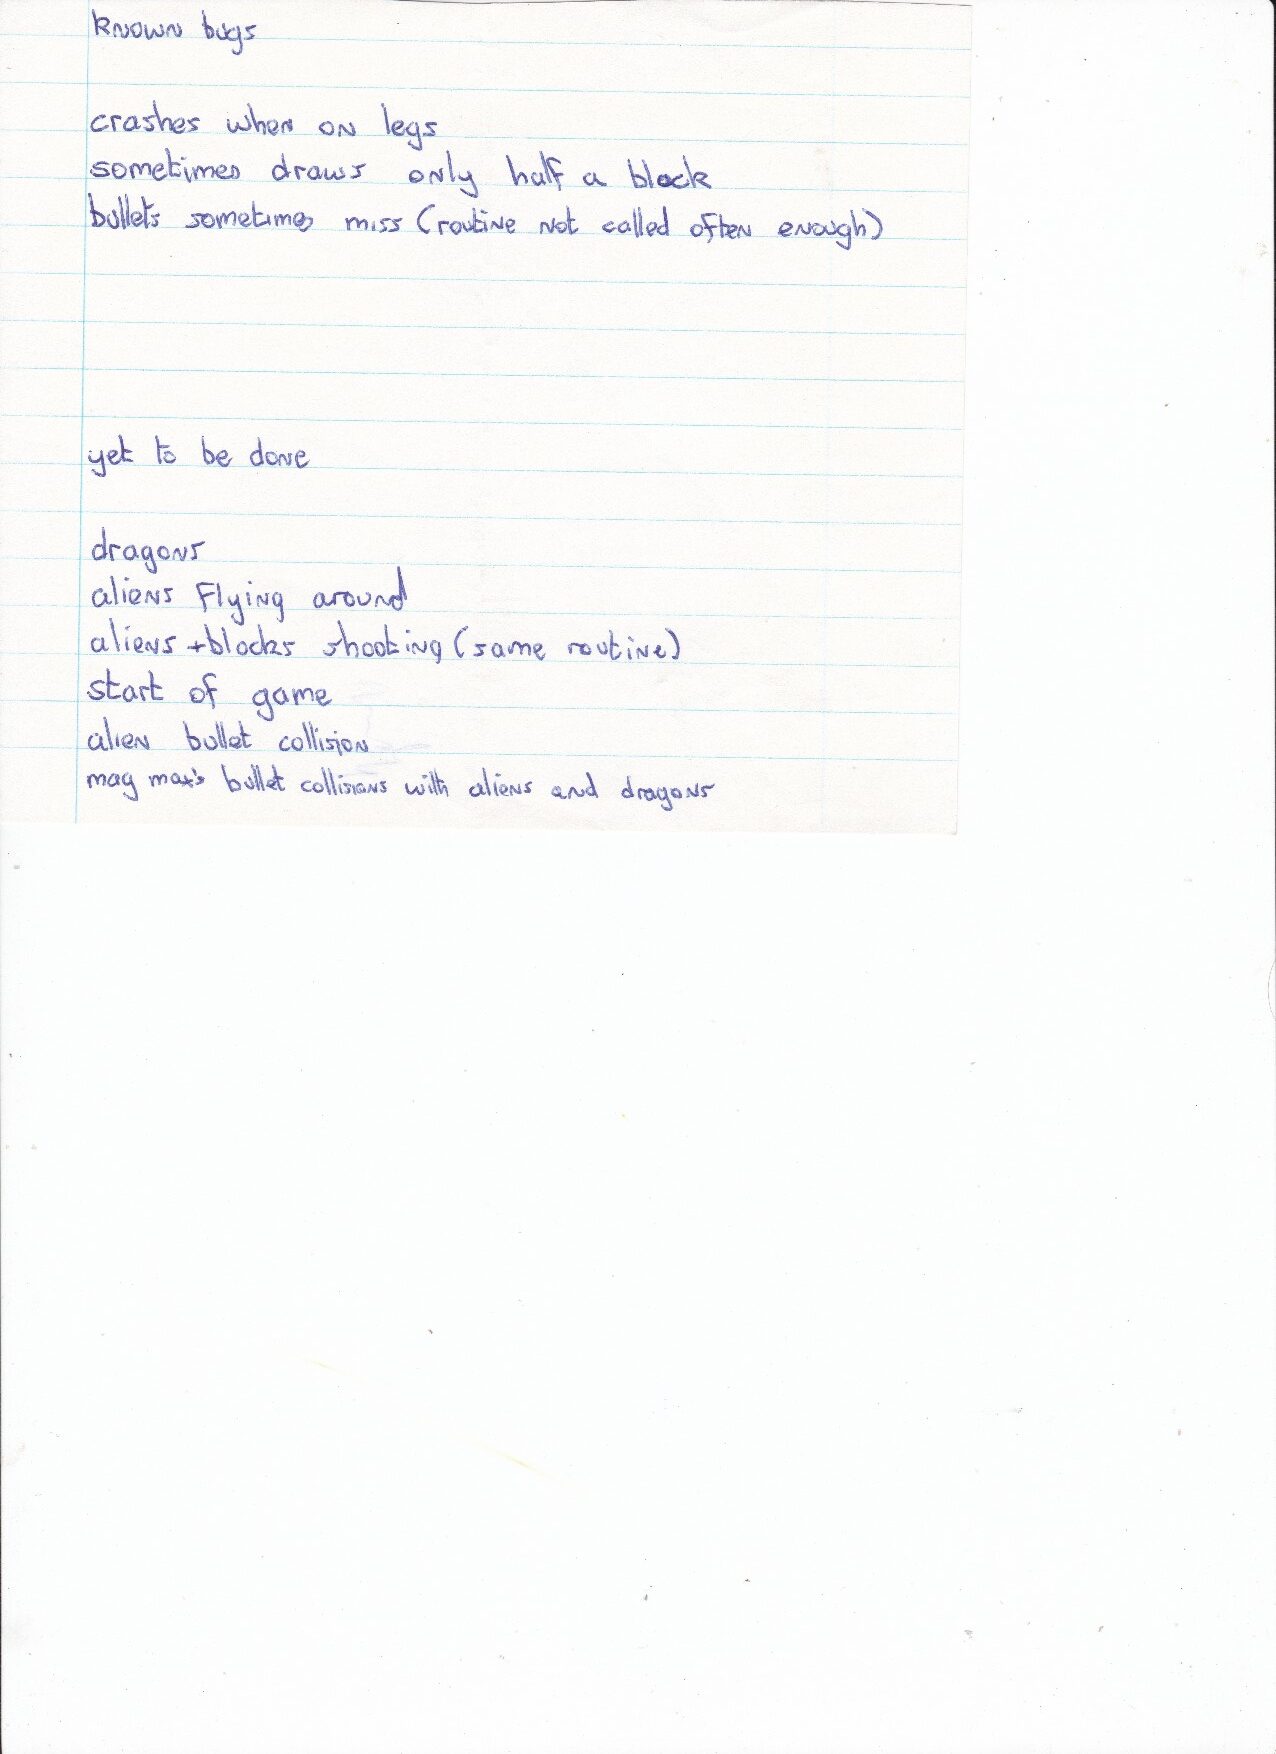 known bugs
crashes when on legs
sometimes draws only half a block
bullets sometimes miss (routine not called often enough)
yet to be done
dragons
aliens flying around
aliens + blocks shooting (same routine)
start of game
alien bullet collision
mag max's bullet collisions with aliens and dragons